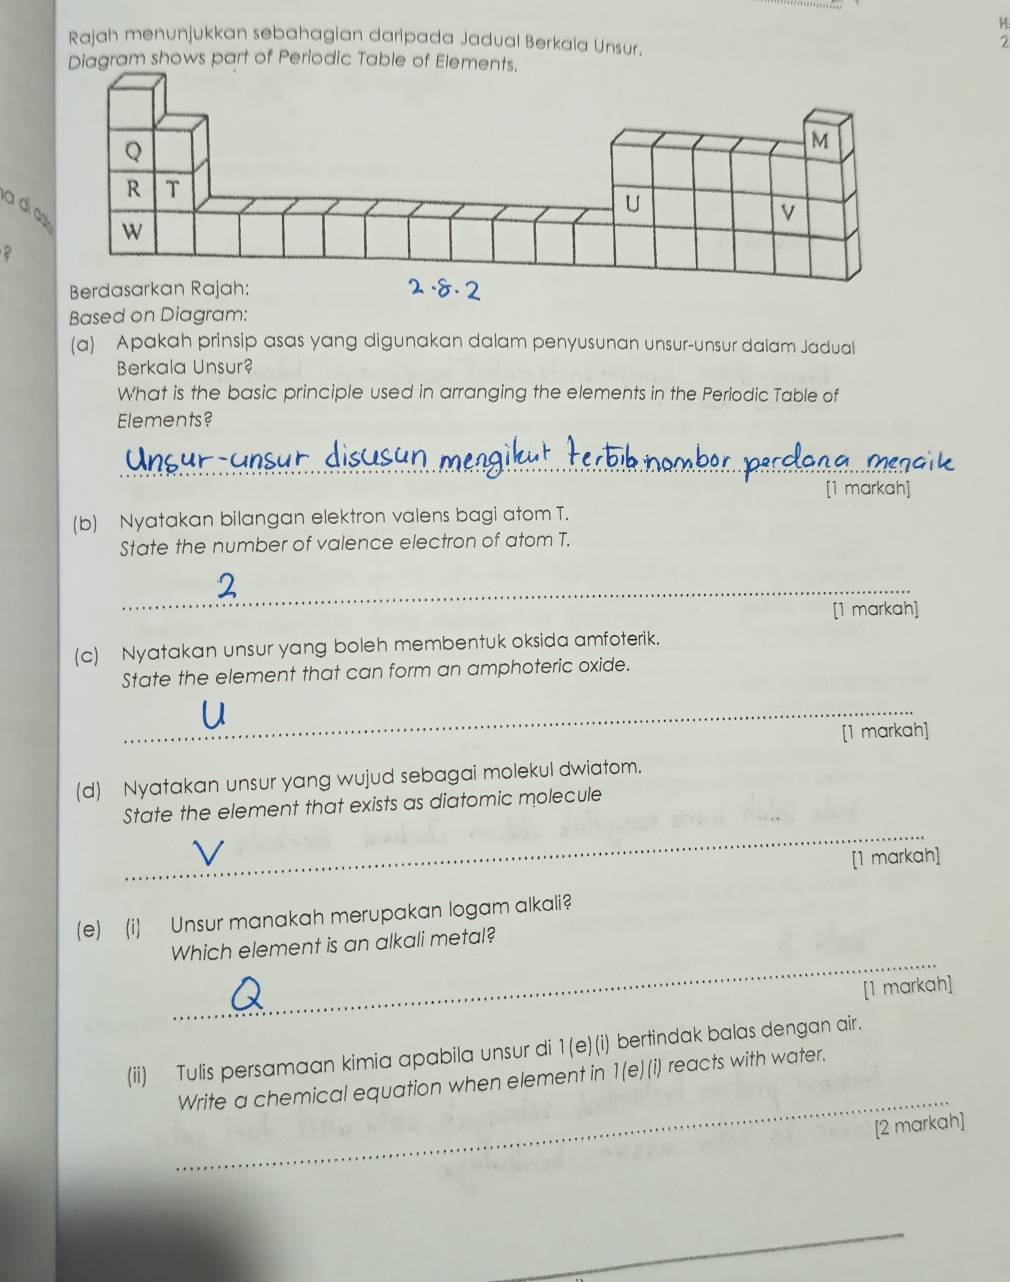 Rajah menunjukkan sebahagian daripada Jadual Berkala Unsur.
Diagram shows part of Periodic Table of Elements.
M
Q
R T
U
V
W
Berdasarkan Rajah:
2.8.2
Based on Diagram:
(a) Apakah prinsip asas yang digunakan dalam penyusunan unsur-unsur dalam Jadual
Berkala Unsur?
What is the basic principle used in arranging the elements in the Periodic Table of
Elements?
Unsur-unsur disusun mengikut tertib nombor perdana menaik
[1 markah]
(b) Nyatakan bilangan elektron valens bagi atom T.
State the number of valence electron of atom T.
2
[1 markah]
(c) Nyatakan unsur yang boleh membentuk oksida amfoterik.
State the element that can form an amphoteric oxide.
U
[1 markah]
(d) Nyatakan unsur yang wujud sebagai molekul dwiatom.
State the element that exists as diatomic molecule
V
[1 markah]
(e) (i) Unsur manakah merupakan logam alkali?
Which element is an alkali metal?
Q
[1 markah]
(ii) Tulis persamaan kimia apabila unsur di 1(e)(i) bertindak balas dengan air.
Write a chemical equation when element in 1(e)(i) reacts with water.
[2 markah]